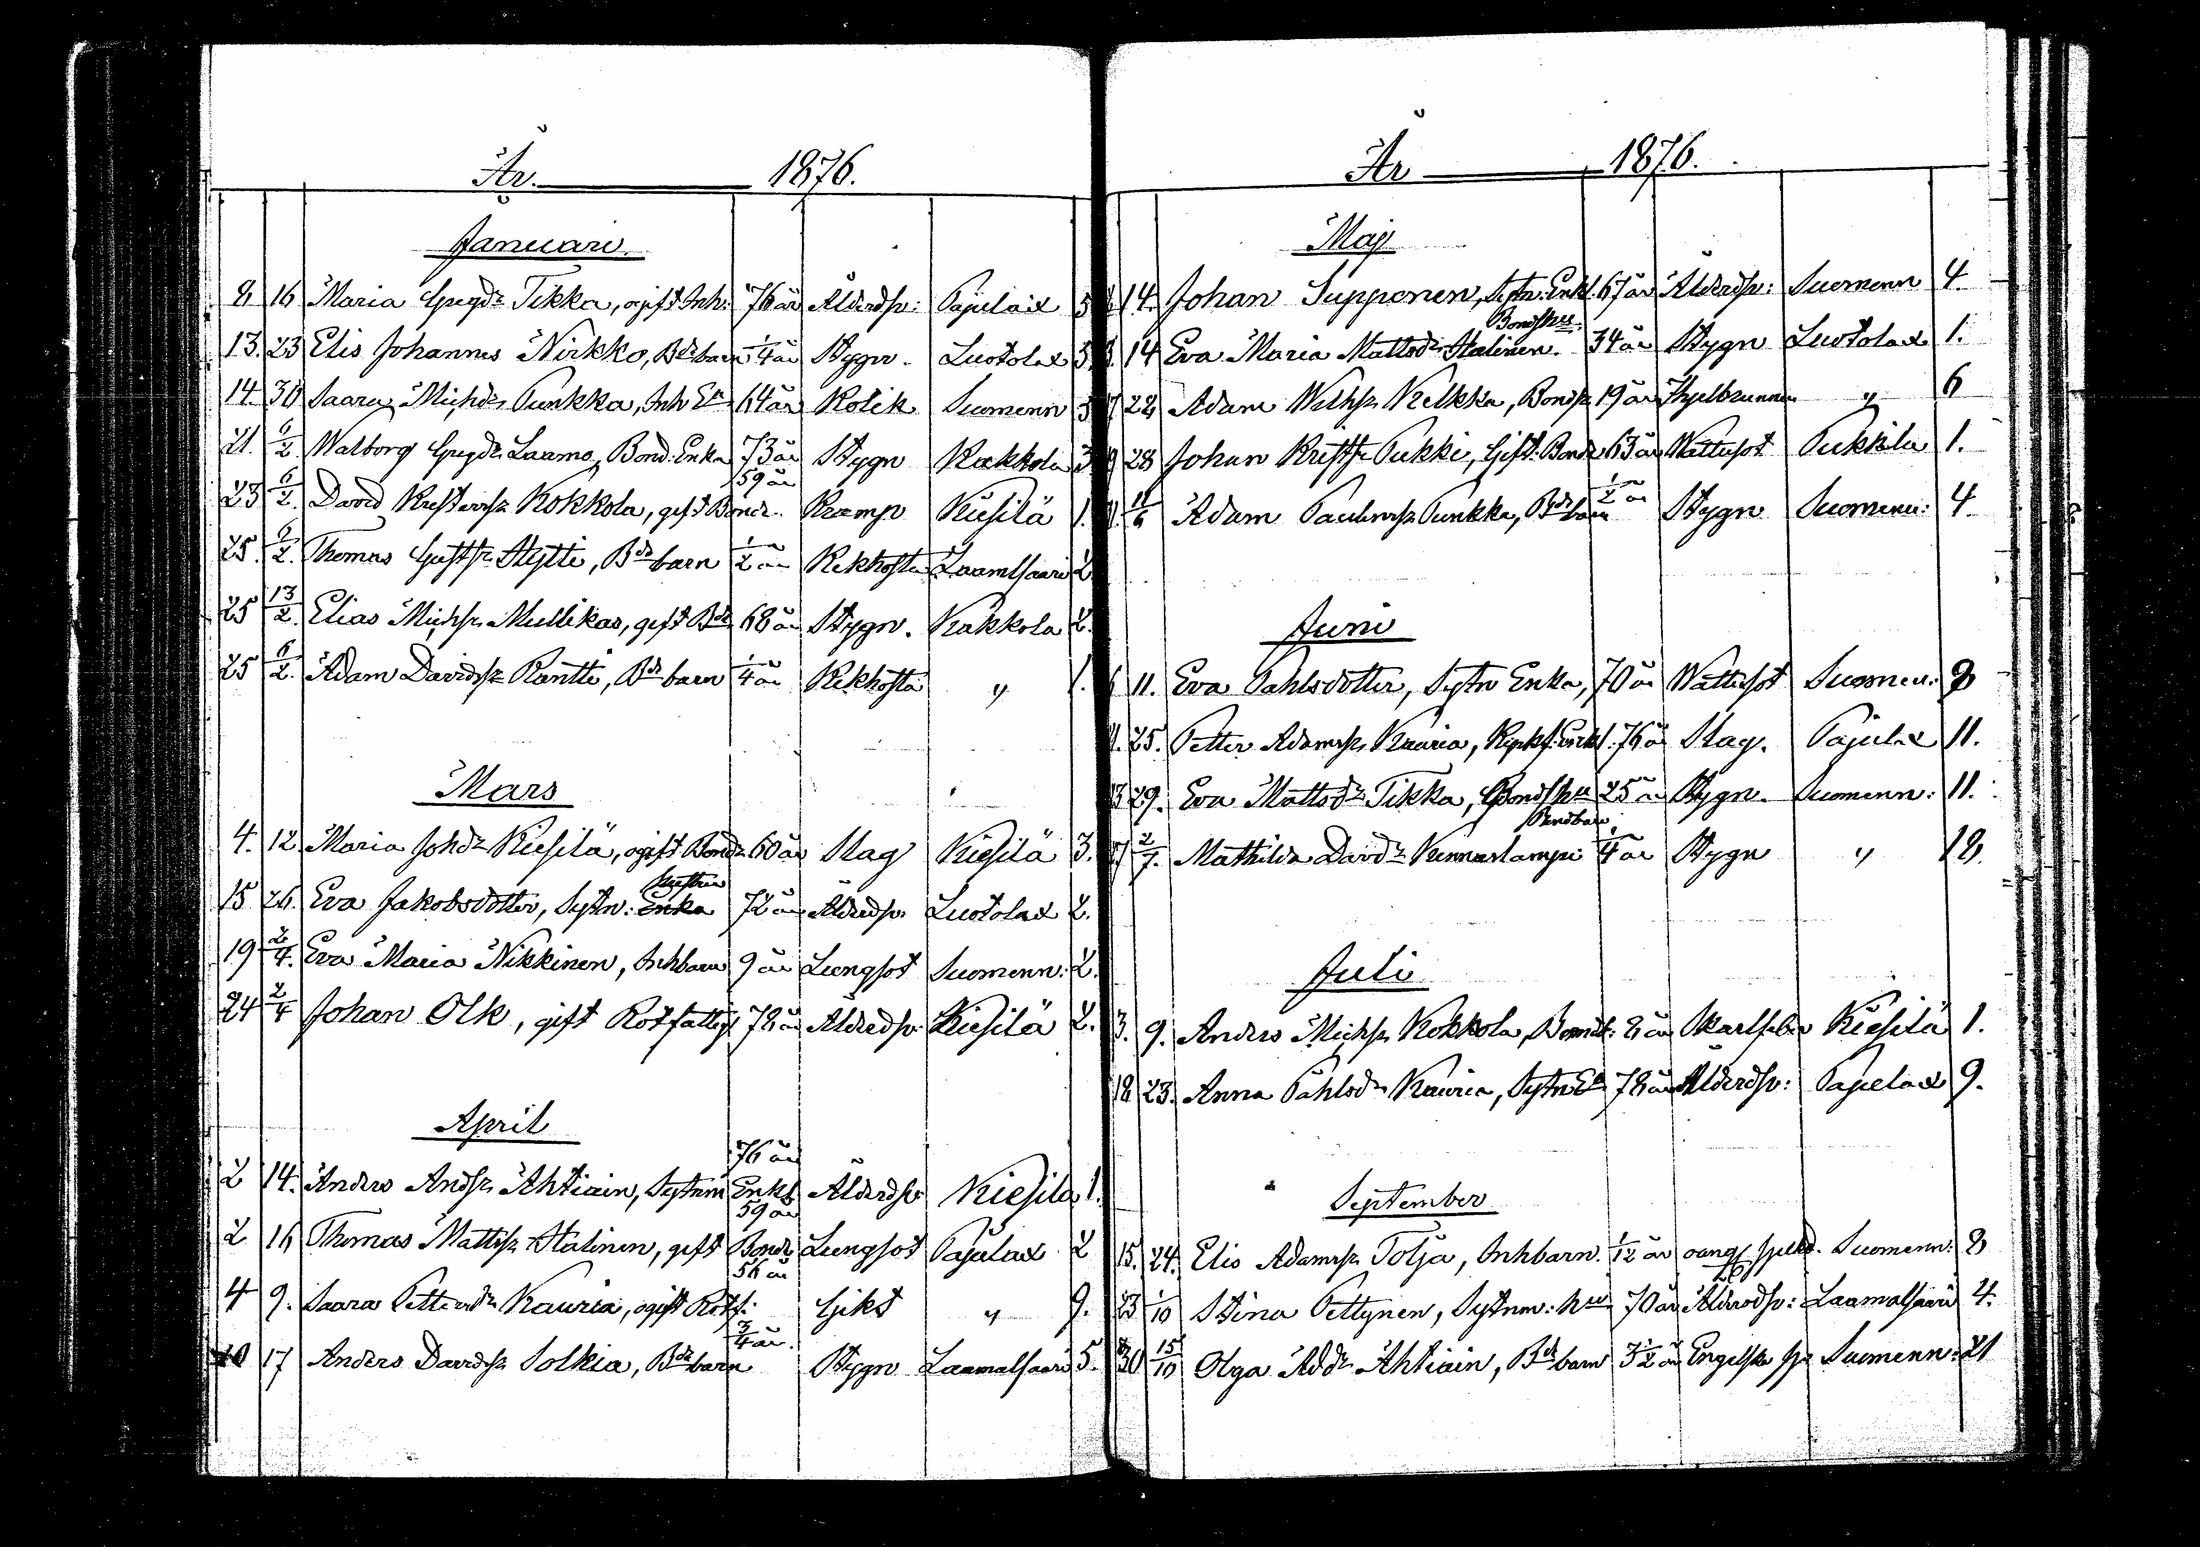 År. 1876.
Januari.
8 16 Maria Gregdr Tikka, ogift Inh: 76 år Ålderdsv: Pajulax 3
13. 23 Elis Johannes Nirkko, Bdebarn 1/4 år Stygn. Luotolax 3
14 30 Saara Michdr Punkka, Inh Ea 64 år Kolik Suomenn 3
21. 6/2. Walborg Gregdr Laamo, Bond: Enka 73 år Stygn Kakkola 3
59 år
23 6/2. David Kristerss. Kokkola, gift Bonde. Kramp Kiesilä 1.
25. 6/2. Thomas Gustfsn Hytti, Bde barn 1/2 år Kikhosta Laamalsaari 2
25 13/2. Elias Michss. Mullikas, gift Bde 68 år Stygn. Kakkola 2.
25 6/2. Adam Davidss. Rantti, Bde barn 1/4 år Kikhosta " 1.
Mars
4. 12 Maria Johdr Kiesilä, ogift Bondr 60 år Slag Kiesilä 3.
15 26. Eva Jakobsdotter, Sytn: Enka 72 år Ålderdsv. Luotolax 2.
19 2/4. Eva Maria Nikkinen, Inhbarn 9 år Lungsot Suomenn: 2.
24 2/4 Johan Olk, gift Rotfattig 78 år Ålderdsv: Kiesilä 2.
April
76 år
2 14. Anders Andss. Ahtiain, Sytnm Enkl. Ålderdsv Kiesilä 1.
59 år
2 16 Thomas Mattss. Halinen, gift Bonde Lungsot Pajulax 2
56 år
4 9. Saara Pettersdr Kauria, ogift Rotf: Gikt " 9.
3/4 år.
10 17 Anders Davidss. Solkia, Bde barn Stygn Laamalsaari 5.
År 1876.
Maj
14. Johan Supponen, Sytn: Enkl. 67 år Ålderdsv: Suomenn 4
Bondhu
14 Eva Maria Mattsdr Halinen. 34 år Stygn Luotolax 1.
28 Adam Wilhss. Kelkka, Bonds. 19 år " 6
28 Johan Kristfs. Pukki, Gift Bonde 63 år Wattusot Pukkila 1.
11/6 Adam Paulusss. Punkka, Bde barn 1/2 år Stygn Suomenn: 4
Juni
6 11. Eva Pahlsdotter, Sytn Enka, 70 år Wattusot Suomen: 9
25. Petter Adamss. Kauria, Enkl. 76 år Slag. Pajulax 11.
13 29. Eva Mattsdr Tikka, Bondhu 25 år Stygn. Suomenn: 11.
Bondbarn
17 2/7. Mathilda Davdr Kinnaslampi 1/4 år Stygn " 18.
Juli
3. 9. Anders Michss. Kokkola, Bondeb: 8 år Skarlfeber Kiesilä 1.
18 23. Anna Påhlsdr Kauria, Sytn Ea 78 år Ålderdsv: Pajulax 9.
September
15. 24. Elis Adamss. Tolja, Inhbarn. 1/12 år oang spebd. Suomenn: 8
23 1/10 Stina Pettynen, Sytnm: hu 70 år Ålderdsv: Laamalsaari 4.
30 15/10 Olga Addr Ahtiain, Bde barn 3 1/2 år Engelska sj. Suomenn: 21